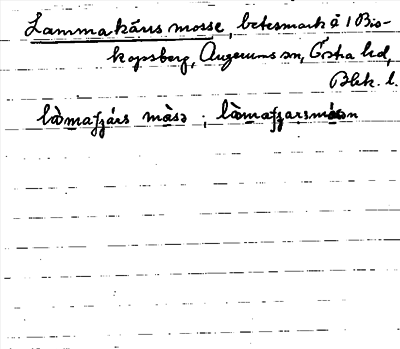 Lammakärrs mosse, betesmark å 1 Bis-
kopsberg, Augerums sn, Östra hd,
Blek. l.
làmaʃʃärs màsə ; làmaʃʃarsmåsən